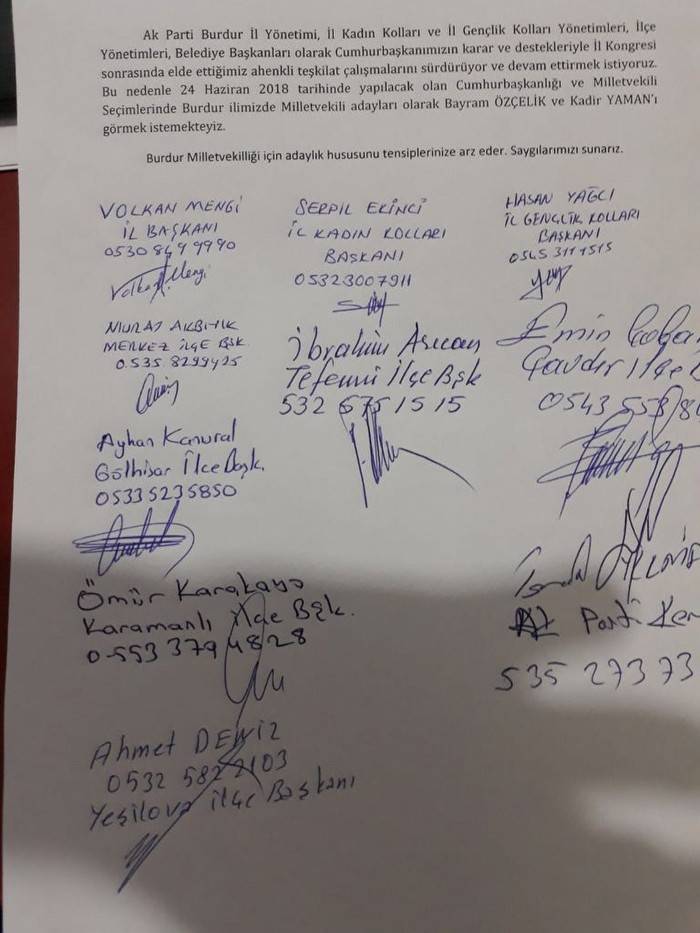 Ak Parti Burdur İl Yönetimi, İl Kadın Kolları ve İl Gençlik Kolları Yönetimleri, İlçe
Yönetimleri, Belediye Başkanları olarak Cumhurbaşkanımızın karar ve destekleriyle İl Kongresi
sonrasında elde ettiğimiz ahenkli teşkilat çalışmalarını sürdürüyor ve devam ettirmek istiyoruz.
Bu nedenle 24 Haziran 2018 tarihinde yapılacak olan Cumhurbaşkanlığı ve Milletvekili
Seçimlerinde Burdur ilimizde Milletvekili adayları olarak Bayram ÖZÇELİK ve Kadir YAMAN'ı
görmek istemekteyiz.
Burdur Milletvekilliği için adaylık hususunu tensiplerinize arz eder. Saygılarımızı sunarız.
VOLKAN MENGİ
İL BAŞKANI
0530 849 9990
SERPİL EKİNCİ
İL KADIN KOLLARI
BAŞKANI
05323007911
HASAN YAĞCI
İL GENÇLİK KOLLARI
BAŞKANI
0545 3111515
MURAT AKBIYIK
MERKEZ İLÇE BŞK.
0.535 8299495
İbrahim Arıcan
Tefenni İlçe Bşk
532 675 15 15
Emin
Çavdır İlçe
0543 558
Ayhan Kanural
Gölhisar İlce Başk.
0533 5235850
Ömür Karakaya
Karamanlı ilçe Bşk.
0-553 379 4828
Parti
535 2773
Ahmet DENİZ
0532 582 2103
Yeşilova ilçe Başkanı